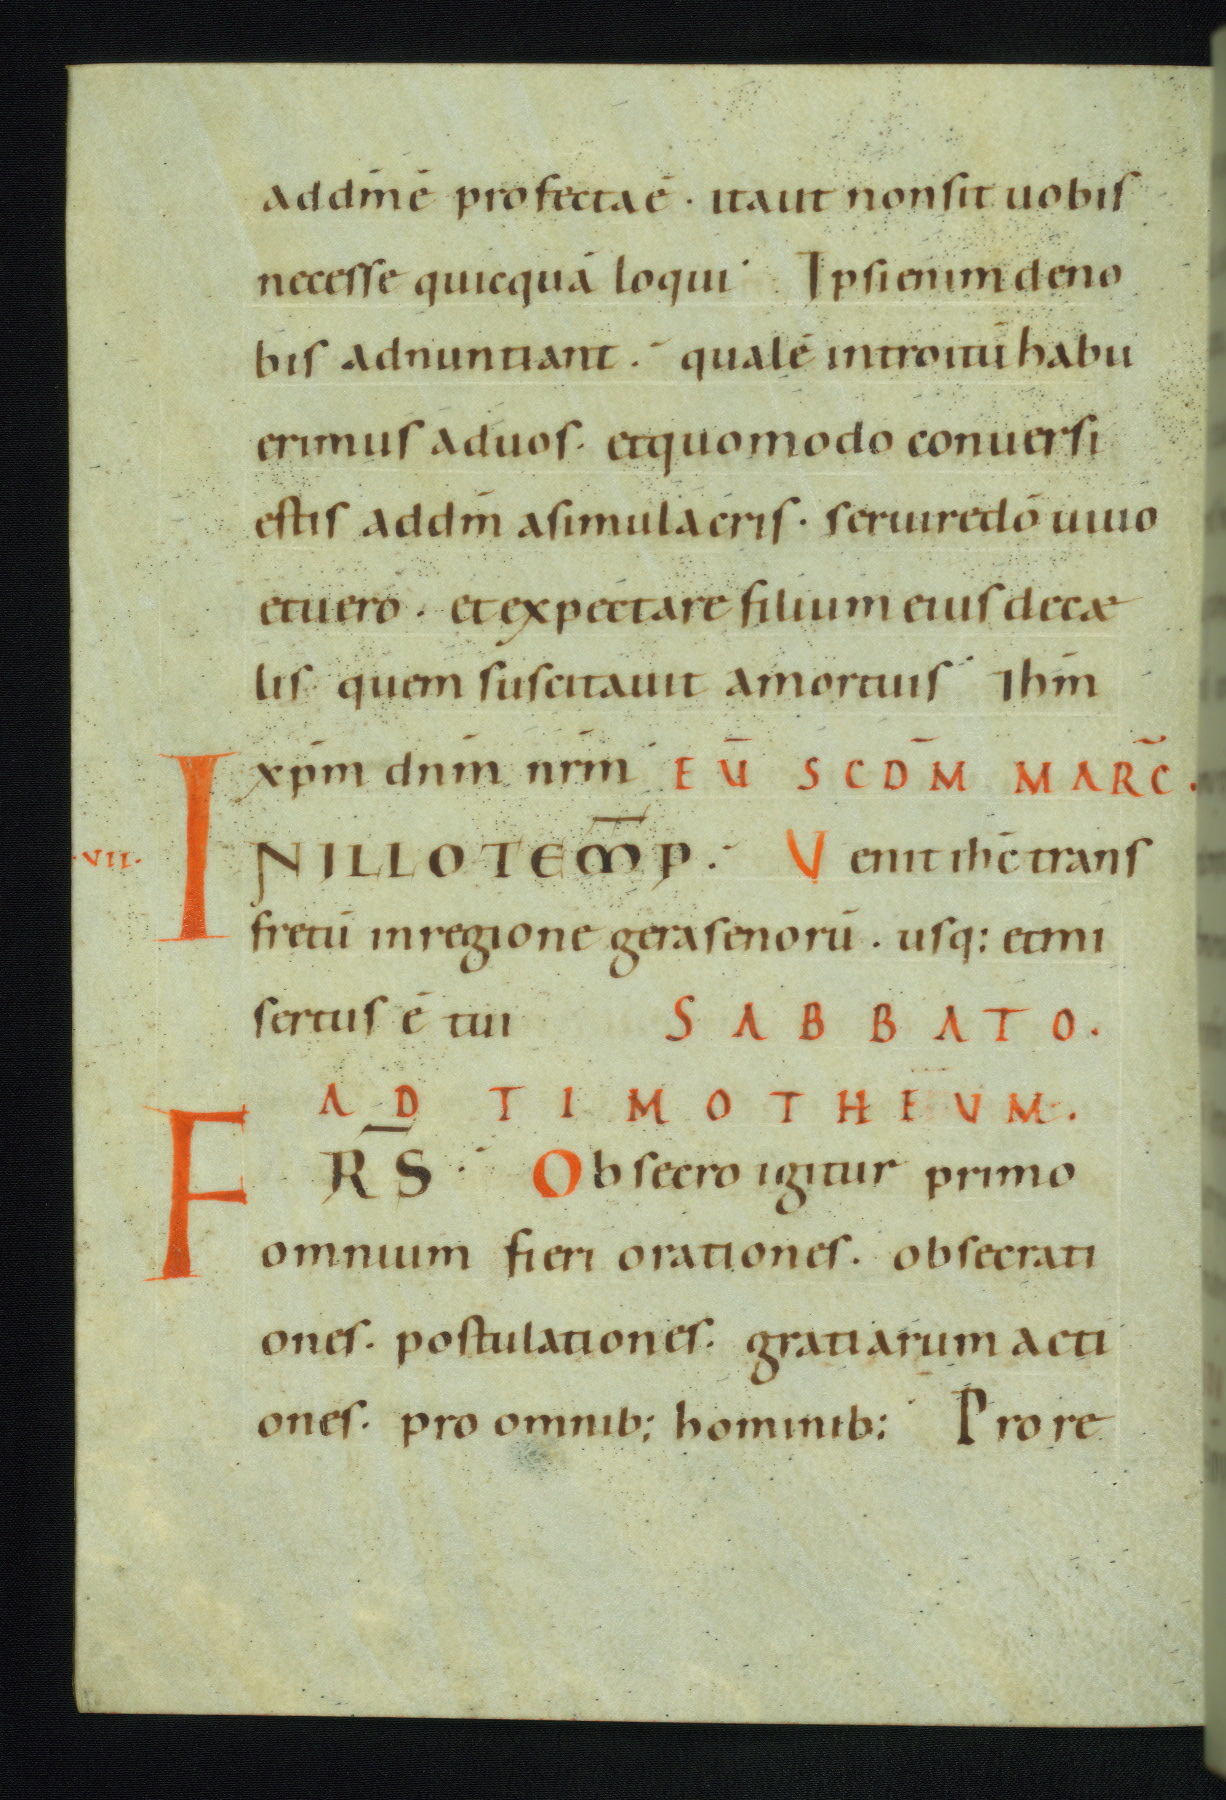 addm̄ē profecta ē · ita ut non sit uobis
necesse quicquā loqui· Ipsi enim de no
bis adnuntiant ·̄ qualē introitū habu
erimus ad uos· et quomodo conuersi
estis ad dm̄ a simulacris · seruire dō uiuo
et uero · et expectare filium eius de cæ
lis· quem suscitauit a mortuis· Ihm̄
xpm̄ dnm̄ nrm̄· EU̅ SCDM̅ MARC̅.
IN ILLO TEM̅P·̄ Uenit ihc̄ trans
·VII·
fretū in regione gerasenorū · usq: et mi
sertus ē tui SABBATO.
AD TIMOTHEUM.
FRS̅ ·̄ Obsecro igitur primo
omnium fieri orationes. obsecrati
ones. postulationes. gratiarum acti
ones. pro omnib; hominib;· Pro re